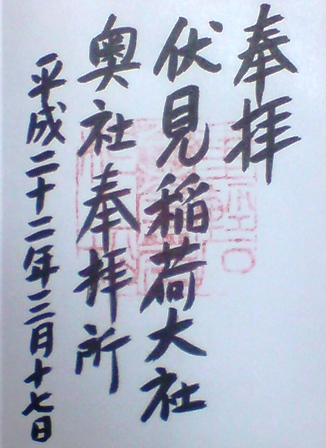 奉拝
伏見稲荷大社
奥社奉拝所
平成二十二年三月十七日